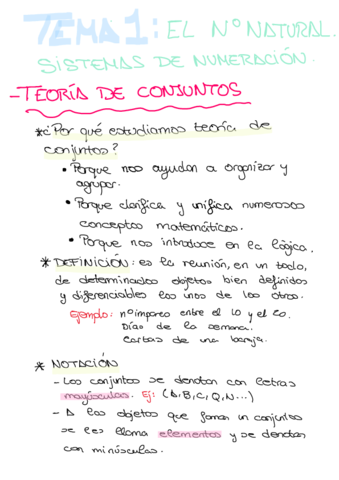 TEMA 1: EL Nº NATURAL.
SISTEMAS DE NUMERACIÓN.
-TEORÍA DE CONJUNTOS
*¿Por qué estudiamos teoría de
conjuntos?
• Porque nos ayudan a organizar y
agrupar.
• Porque clarifica y unifica numerosos
conceptos matemáticos.
• Porque nos introduce en la lógica.
* DEFINICIÓN: es la reunión, en un todo,
de determinados objetos bien definidos
y diferenciables los unos de los otros.
Ejemplo: nº impares entre el 10 y el 20.
Días de la semana.
Cartas de una baraja.
* NOTACIÓN
- Los conjuntos se denotan con letras
mayúsculas. Ej: (A, B, C, Q, N...)
- A los objetos que forman un conjunto
se les llama elementos y se denotan
con minúsculas.